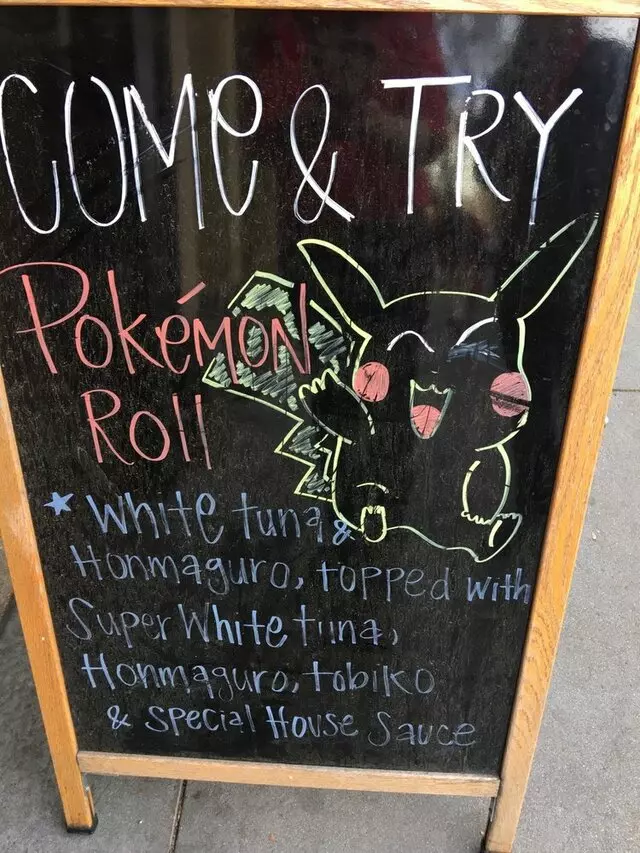 COME & TRY
POKéMON
Roll
* White tuna &
Honmaguro, topped with
Super White tuna,
Honmaguro, tobiko
& Special House Sauce